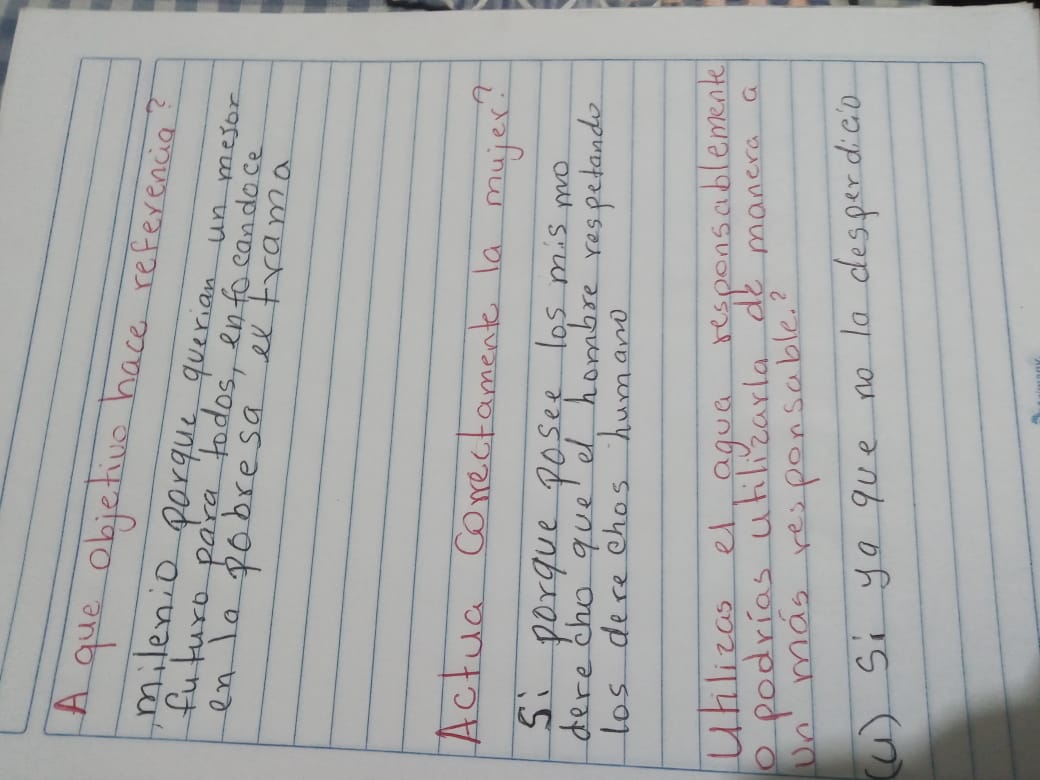 A que objetivo hace referencia?
milenio porque querian un mejor
futuro para todos, enfocandoce
en la pobresa, el trama
Actua Correctamente la mujer?
Si porque posee los mis mo
derecho que el hombre respetando
los derechos humano
Utilizas el agua responsablemente
o podrías utilizarla de manera a
un más responsable.?
(u) Si ya que no la desperdicio